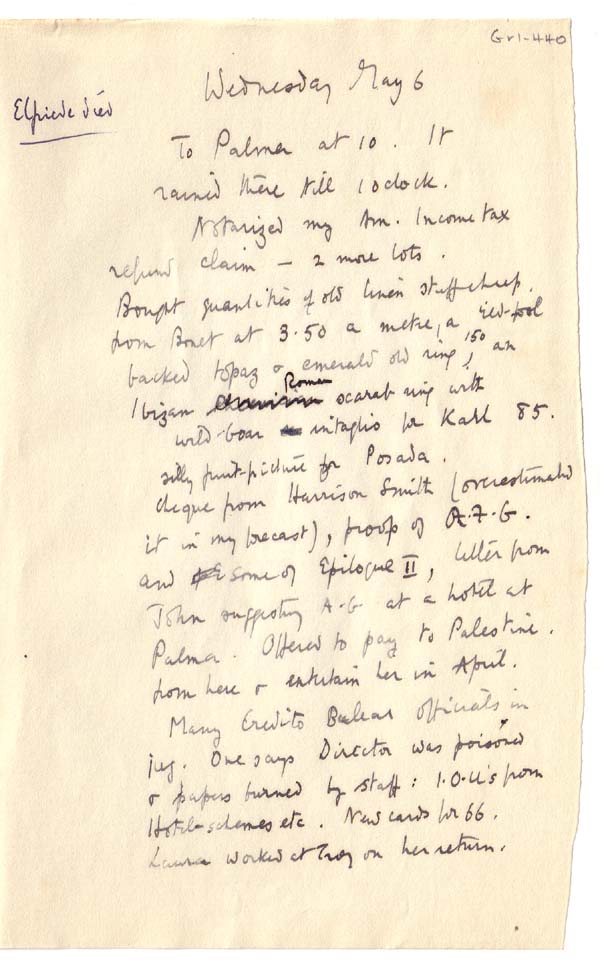 Gr1-440
Wednesday May 6
Elfriede died
To Palma at 10. It
rained there till 1 oclock.
Notarized my Am. Income tax
refund claim – 2 more lots.
Bought quantities of old linen stuff cheap
from Bonet at 3.50 a metre, a
backed topaz & emerald old ring, 150 an
Ibizan Roman scarab ring with
wild-boar intaglio for Karl 85.
silly fruit-picture for Posada.
Cheque from Harrison Smith (overestimated
it in my forecast), proofs of A.T.G.
and some of Epilogue II, letter from
John suggesting A.G at a hotel at
Palma. Offered to pay to Palestine.
from here & entertain her in April.
Many Credito Balear officials in
jug. One says Director was poisoned
& papers burned by staff: I.O.U's from
Hotel-schemes etc. New cards for 66.
Laura worked at Troy on her return.